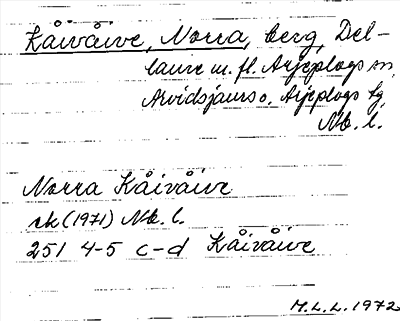 Kåivåive, Norra, berg, Del-
laure m. fl. Arjeplogs sn,
Arvidsjaurs o. Arjeplogs tg,
Nb. l.
Norra Kåivåive
ek (1971) Nb. l.
25I 4-5 c-d Kåivåive
M.L.L. 1972